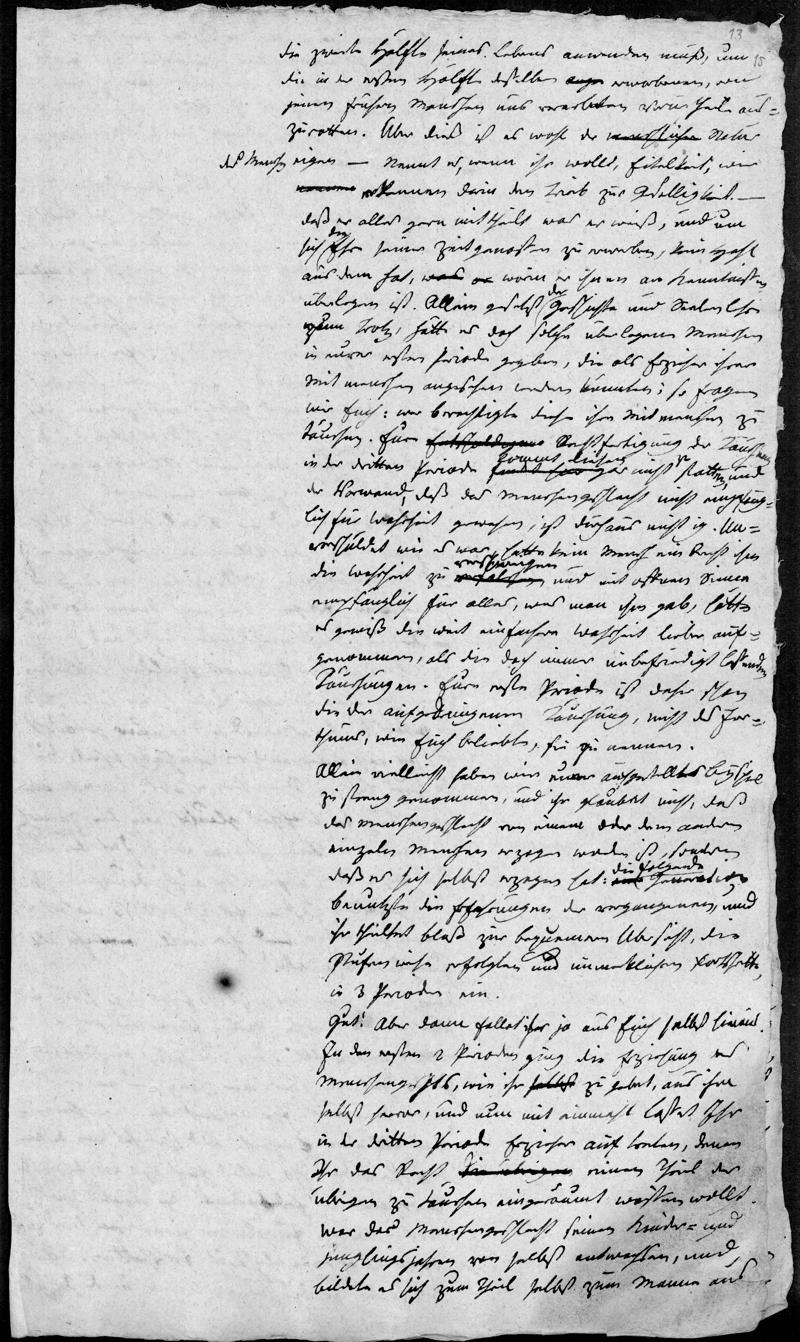 13
15
die zweite Hälfte seines Lebens anwenden muß, um
die in der ersten Hälfte desselben erworbenen, von
jenen frühern Menschen uns vererbten Vorurtheile aus=
zurotten. Aber dieß ist es wohl der menschlichen Natur
des Menschen eigen — nennt es, wenn ihr wollt, Eitelkeit, wir
erkennen darin den Trieb zur Geselligkeit. —
daß er alles gern mittheilt was er weiß, und um
sich die Ehre seiner Zeitgenossen zu erwerben, kein Hehl
aus dem hat, was er worin er ihnen an Kenntnissen
überlegen ist. Allein gesetzt der Geschichte und Seelenlehre
zum Trotz, hätte es doch solche überlegene Menschen
in eurer ersten Periode gegeben, die als Erzieher ihrer
Mitmenschen angesehen werden könnten; so fragen
wir Euch: wer berechtigte diese ihre Mitmenschen zu
täuschen. Eure Entschuldigung Rechtfertigung der Täuschung
in der dritten Periode findet hier kommt diesen gar nicht zu statten, und
der Vorwand, daß das Menschengeschlecht nicht empfäng=
lich für Wahrheit gewesen, ist durchaus nichtig. Un=
verschuldet wie es war, hatte kein Mensch ein Recht ihm
die Wahrheit zu verschweigen und mit offenem Sinne
empfänglich für alles, was man ihm gab, hätte
es gewiß die weit einfachere Wahrheit lieber auf=
genommen, als die doch immer unbefriedigt lassenden
Täuschungen. Eure erste Periode ist daher schon
die der aufgedrungenen Täuschung, nicht des Irr=
thums, wie Euch beliebte, sie zu nennen.
Allein vielleicht haben wir euer aufgestelltes Beyspiel
zu streng genommen, und ihr glaubet nicht, daß
das Menschengeschlecht von einem oder dem andern
einzeln Menschen erzogen worden ist, sondern
daß es sich selbst erzogen hat: die folgende Generation
benutzte die Erfahrungen der vergangenen, und
ihr theiltet bloß zur bequemern Übersicht, die
Stufenweise erfolgten und unmerklichen Fortschritte,
in 3 Perioden ein.
Gut! Aber dann fallet ihr ja aus Euch selbst hinaus.
In den ersten 2 Perioden ging die Erziehung des
Menschengeschlechts, wie ihr selbst zu gebet, aus ihm
selbst hervor, und nun mit einmahl lasset Ihr
in der dritten Periode Erzieher auf treten, denen
Ihr das Recht die übrigen einen Theil der
übrigen zu täuschen eingeräumt wissen wollt.
War das Menschengeschlecht seinen Kinder= und
Jünglingsjahren von selbst entwachsen, und
bildete es sich zum Theil selbst zum Manne aus